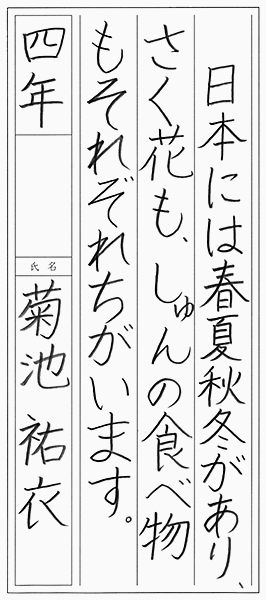 日本には春夏秋冬があり、
さく花も、しゅんの食べ物
もそれぞれちがいます。
四年
氏名
菊池 祐衣